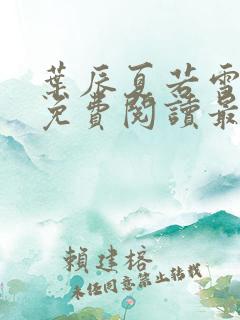 葉辰夏若雪
免費閱讀最
賴建榕
未经同意禁止转载